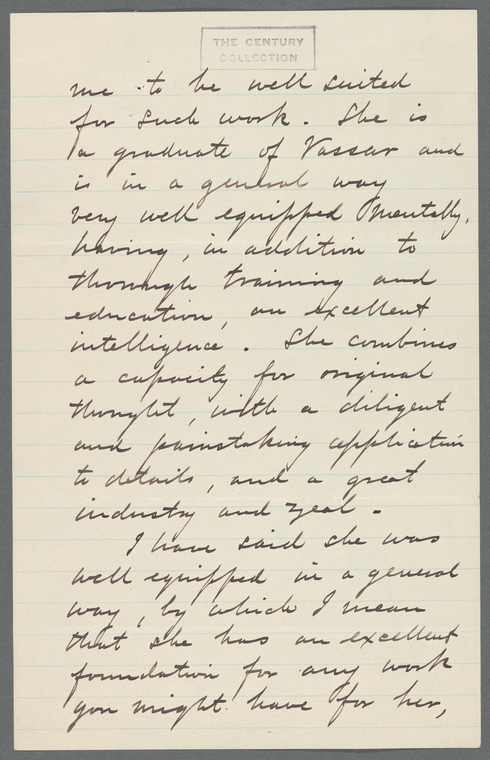 THE CENTURY
COLLECTION
me to be well suited
for such work. She is
a graduate of Vassar and
is in a general way
very well equipped mentally,
having, in addition to
thorough training and
education, an excellent
intelligence. She combines
a capacity for original
thought, with a diligent
and painstaking application
to details, and a great
industry and zeal.
I have said she was
well equipped in a general
way, by which I mean
that she has an excellent
foundation for any work
you might have for her,